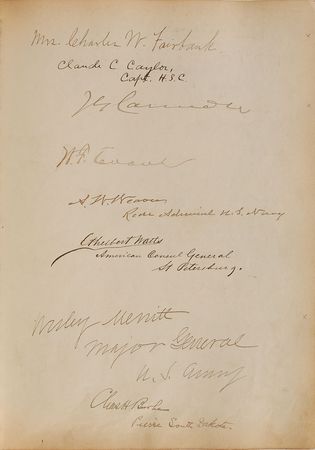 Mrs. Charles W. Fairbank
Claude C Caylor,
Capt. H.S.C.
W. F.
Rear Admiral U.S. Navy
Ethelbert Watts
American Consul General
St Petersburg.
Wesley Merritt
Major General
U. S. Army
Chas H
Pierre South Dakota.